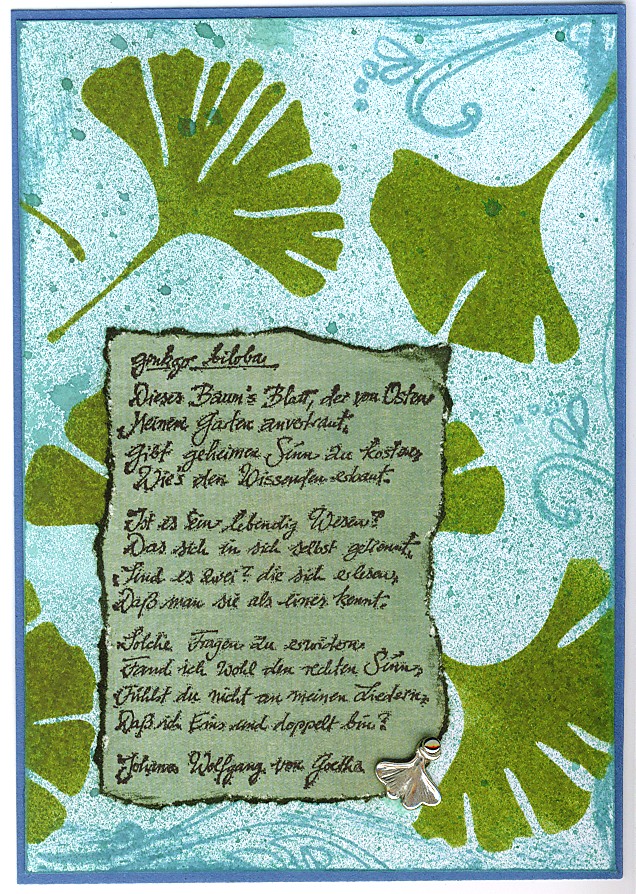 ginkgo biloba
Dieses Baum's Blatt, der von Osten
Meinem Garten anvertraut,
Gibt geheimen Sinn zu kosten,
Wie's den Wissenden erbaut.
Ist es Ein lebendig Wesen?
Das sich in sich selbst getrennt,
Sind es zwei? die sich erlesen,
Daß man sie als eines kennt.
Solche Fragen zu erwidern
Fand ich wohl den rechten Sinn,
Fühlst du nicht an meinen Liedern,
Daß ich Eins und doppelt bin?
Johann Wolfgang von Goethe